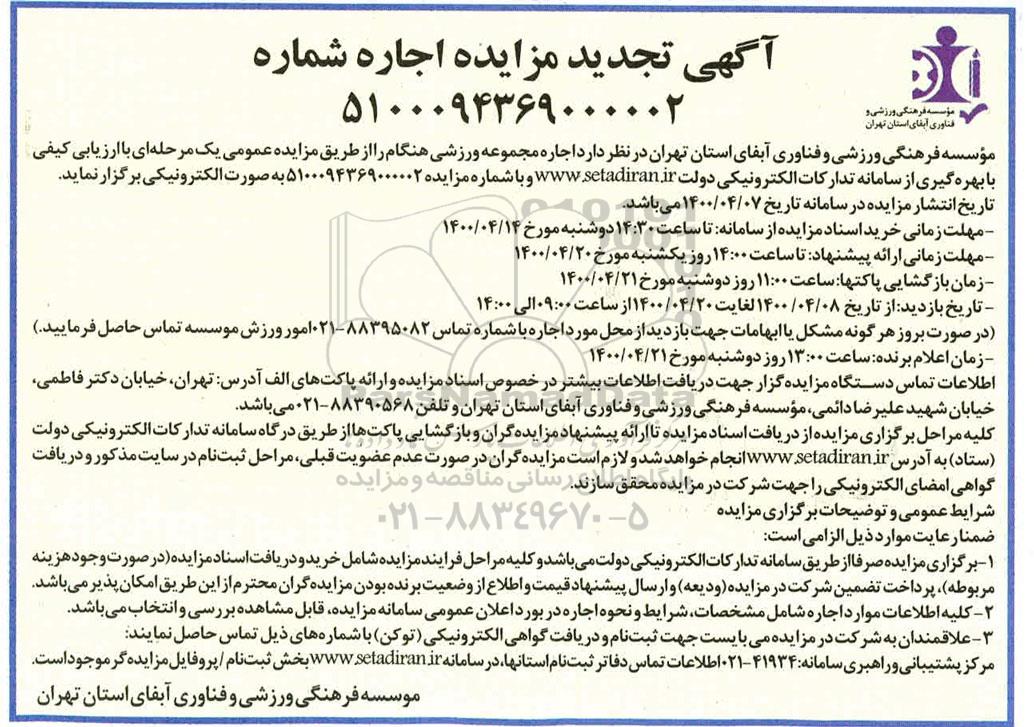 آگهی تجدید مزایده اجاره شماره
۵۱۰۰۰۹۴۳۶۹۰۰۰۰۰۲
مؤسسه فرهنگی ورزشی و
فناوری آبفای استان تهران
مؤسسه فرهنگی ورزشی و فناوری آبفای استان تهران در نظر دارد اجاره مجموعه ورزشی هنگام را از طریق مزایده عمومی یک مرحله‌ای با ارزیابی کیفی
با بهره گیری از سامانه تدارکات الکترونیکی دولت www.setadiran.ir و با شماره مزایده ۵۱۰۰۰۹۴۳۶۹۰۰۰۰۰۲ به صورت الکترونیکی برگزار نماید.
تاریخ انتشار مزایده در سامانه تاریخ ۱۴۰۰/۰۴/۰۷ می‌باشد.
-مهلت زمانی خرید اسناد مزایده از سامانه: تا ساعت ۱۴:۳۰ دوشنبه مورخ ۱۴۰۰/۰۴/۱۴
-مهلت زمانی ارائه پیشنهاد: تا ساعت ۱۴:۰۰ روز یکشنبه مورخ ۱۴۰۰/۰۴/۲۰
-زمان بازگشایی پاکتها: ساعت ۱۱:۰۰ روز دوشنبه مورخ ۱۴۰۰/۰۴/۲۱
-تاریخ بازدید: از تاریخ ۱۴۰۰/۰۴/۰۸ لغایت ۱۴۰۰/۰۴/۲۰ از ساعت ۰۹:۰۰ الی ۱۴:۰۰
(در صورت بروز هرگونه مشکل یا ابهامات جهت بازدید از محل مورد اجاره با شماره تماس ۸۸۳۹۵۰۸۲-۰۲۱ امور ورزش موسسه تماس حاصل فرمایید.)
-زمان اعلام برنده: ساعت ۱۳:۰۰ روز دوشنبه مورخ ۱۴۰۰/۰۴/۲۱
اطلاعات تماس دستگاه مزایده گزار جهت دریافت اطلاعات بیشتر در خصوص اسناد مزایده و ارائه پاکت‌های الف آدرس: تهران، خیابان دکتر فاطمی،
خیابان شهید علیرضا دائمی، مؤسسه فرهنگی ورزشی و فناوری آبفای استان تهران و تلفن ۸۸۳۹۰۵۶۸-۰۲۱ می‌باشد.
کلیه مراحل برگزاری مزایده از دریافت اسناد مزایده تا ارائه پیشنهاد مزایده گران و بازگشایی پاکت‌ها از طریق درگاه سامانه تدارکات الکترونیکی دولت
(ستاد) به آدرس www.setadiran.ir انجام خواهد شد و لازم است مزایده گران در صورت عدم عضویت قبلی، مراحل ثبت‌نام در سایت مذکور و دریافت
گواهی امضای الکترونیکی را جهت شرکت در مزایده محقق سازند.
پایگاه اطلاع رسانی مناقصه و مزایده
شرایط عمومی و توضیحات برگزاری مزایده
۰۲۱-۸۸۳۴۹۶۷۰-۵
ضمنا رعایت موارد ذیل الزامی است:
۱-برگزاری مزایده صرفا از طریق سامانه تدارکات الکترونیکی دولت می‌باشد و کلیه مراحل فرایند مزایده شامل خرید و دریافت اسناد مزایده (در صورت وجود هزینه
مربوطه)، پرداخت تضمین شرکت در مزایده (ودیعه) و ارسال پیشنهاد قیمت و اطلاع از وضعیت برنده بودن مزایده گران محترم از این طریق امکان پذیر می‌باشد.
۲-کلیه اطلاعات موارد اجاره شامل مشخصات، شرایط و نحوه اجاره در بورد اعلان عمومی سامانه مزایده، قابل مشاهده بررسی و انتخاب می‌باشد.
۳-علاقمندان به شرکت در مزایده می بایست جهت ثبت‌نام و دریافت گواهی الکترونیکی (توکن) با شماره‌های ذیل تماس حاصل نمایند:
مرکز پشتیبانی و راهبری سامانه: ۴۱۹۳۴-۰۲۱ اطلاعات تماس دفاتر ثبت‌نام استانها، در سامانه www.setadiran.ir بخش ثبت‌نام / پروفایل مزایده گر موجود است.
موسسه فرهنگی ورزشی و فناوری آبفای استان تهران